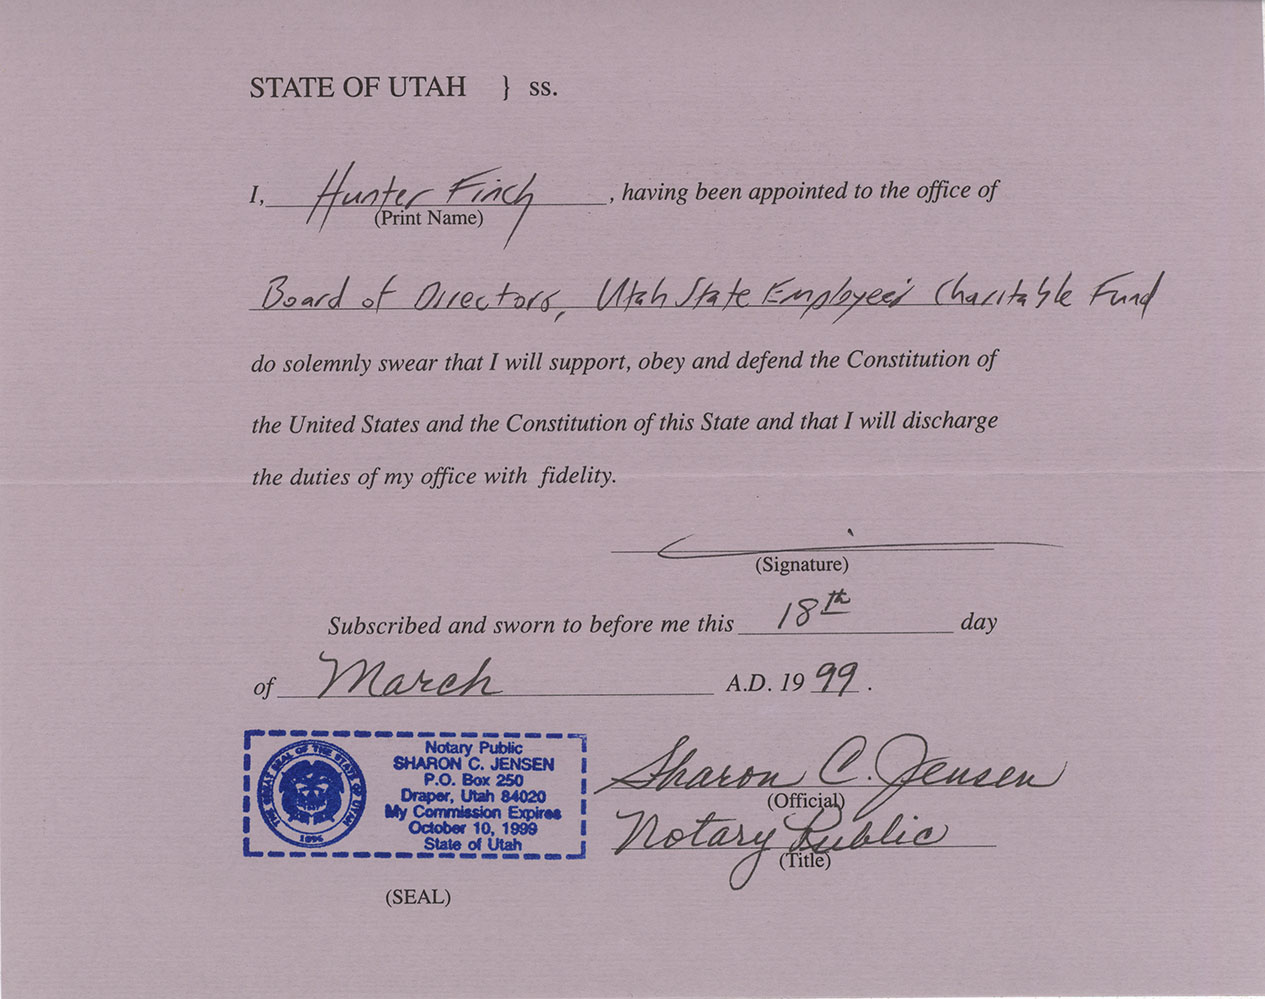 STATE OF UTAH } ss.
I, Hunter Finch, having been appointed to the office of
(Print Name)
Board of Directors, Utah State Employees' Charitable Fund
do solemnly swear that I will support, obey and defend the Constitution of
the United States and the Constitution of this State and that I will discharge
the duties of my office with fidelity.
(Signature)
Subscribed and sworn to before me this 18th day
of March A.D. 1999.
THE GREAT SEAL OF THE STATE OF UTAH
1896
Notary Public
SHARON C. JENSEN
P.O. Box 250
Draper, Utah 84020
My Commission Expires
October 10, 1999
State of Utah
(SEAL)
Sharon C. Jensen
(Official)
Notary Public
(Title)